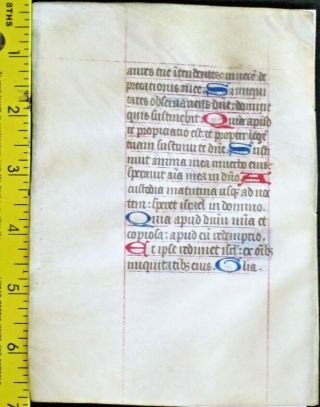 8THS
1
2
3
4
5
6
7
aures tue ītendentes: in uocē de
precationis mee. Si iniqui
tates obseruaueris dn̄e: domine
quis sustinebit. Quia apud
te propiciatio est: et propter legē
tuam sustinui te dn̄e. Susti
nuit anima mea in uerbo eius:
sperauit aīa mea in dn̄o. A
custodia matutina usqꝫ ad noc
tem: speret israel in domino.
Quia apud dn̄m mīa et
copiosa: apud eū redemptio.
Et ipse redimet isrl̄: ex oībꝫ
iniquitatibꝫ eius. Glīa.